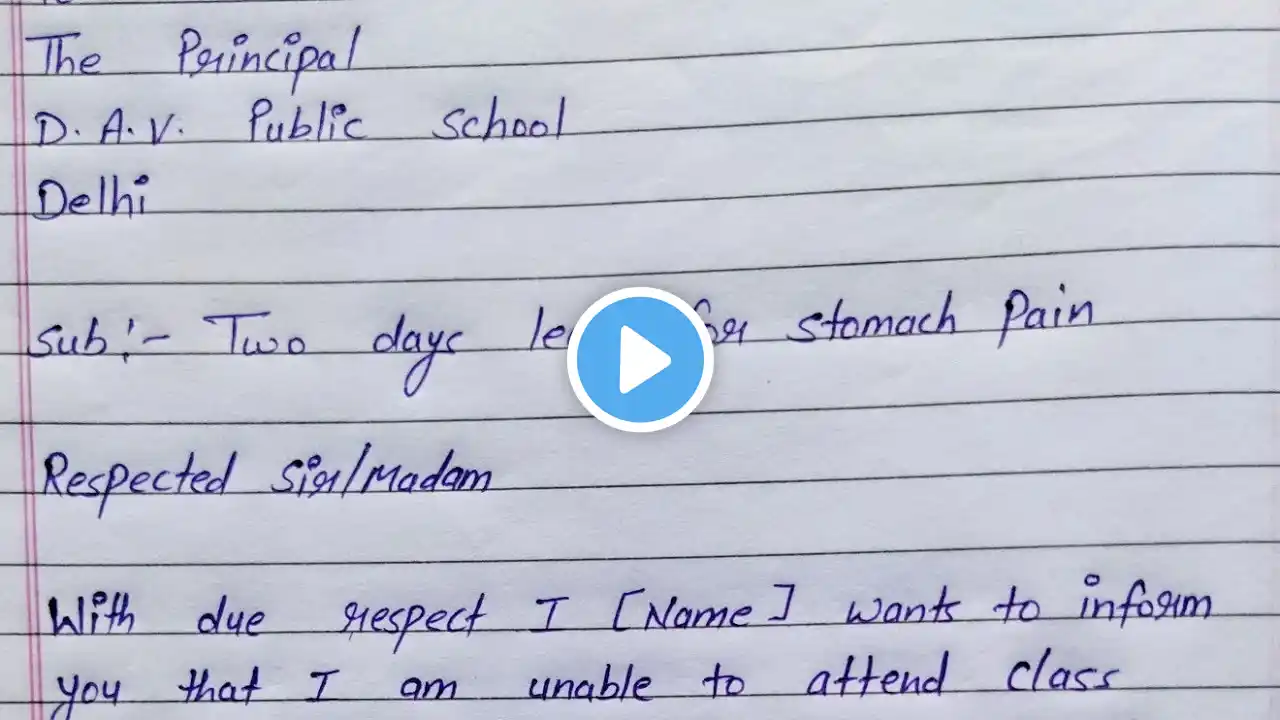 The Principal
D.A.V. Public School
Delhi
Sub:- Two days for stomach Pain
Respected Sir/Madam
With due respect I [Name] wants to inform
you that I am unable to attend class